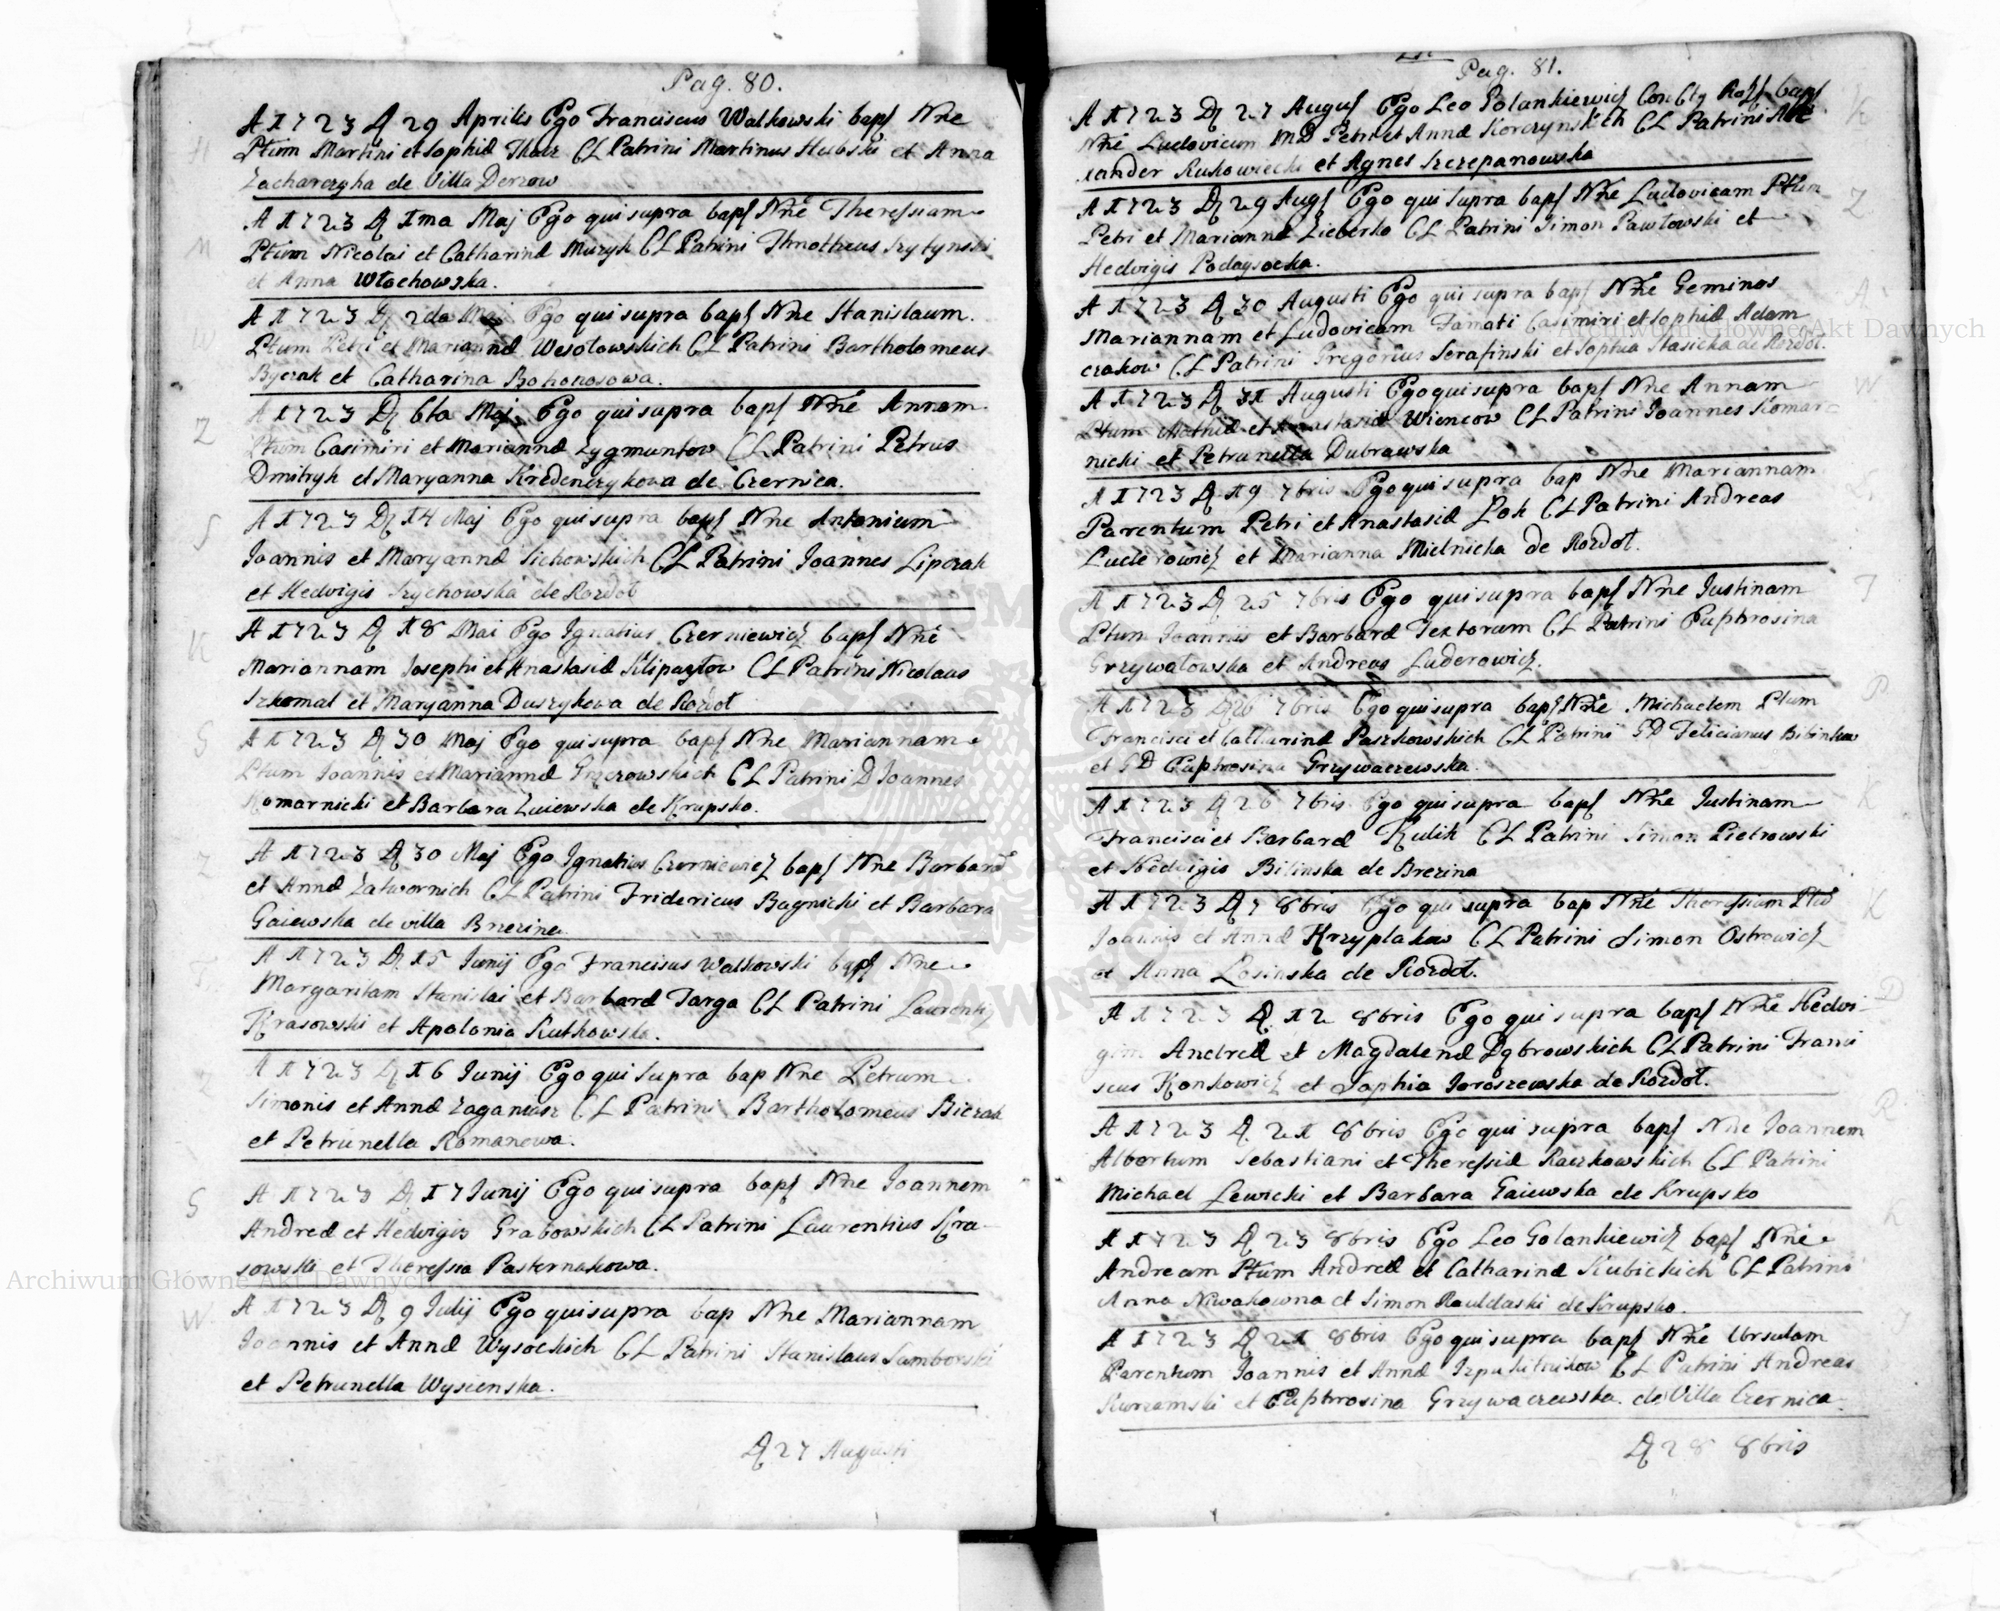 Pag. 80.
A 1723 D 29 Aprilis Ego Franciscus Walkowski bapt Nne
Ptum Martini et Sophiæ CL Patrini Martinus Hubski et Anna
Zacharczyha de Villa Derzow
A 1723 D 1ma Maj Ego qui supra bapt Nne Theressiam
Ptum Nicolai et Catharinæ Muzyk CL Patrini Thnotheus
et Anna Włochowska.
A 1723 D 2da Maj Ego qui supra bapt Nne Stanislaum.
Ptum Petri et Mariannæ Wesołowskich CL Patrini Bartholomeus
Byczak et Catharina Bohonosowa.
A 1723 D 6ta Maj Ego qui supra bapt Nne Annam
Ptum Casimiri et Mariannæ Zygmuntow CL Patrini Petrus
Dmitryk et Maryanna de Czernica.
A 1723 D 14 Maj Ego qui supra bapt Nne Antonium
Joannis et Maryannæ Sichowskich CL Patrini Joannes Lipczak
et Hedvigis Szychowska de Rozdoł
A 1723 D 18 Mai Ego Ignatius Czerniewicz bapt Nne
Mariannam Josephi et Anastasiæ CL Patrini Nicolaus
et Maryanna Duszykowa de Rozdoł
A 1723 D 30 Maj Ego qui supra bapt Nne Mariannam
Ptum Joannis et Mariannæ CL Patrini D Joannes
Komarnicki et Barbara Zuiewska de Krupsko.
A 1723 D 30 Maj Ego Ignatius Czerniewicz bapt Nne Barbara
et Annæ Zatwornich CL Patrini Fridericus Bagnicki et Barbara
Gaiewska de villa Brzezina
A 1723 D 15 Junij Ego Franciscus Walkowski bapt Nne
Margaritam Stanislai et Barbaræ Targa CL Patrini Laurentij
Krasowski et Apolonia Rutkowska.
A 1723 D 16 Junij Ego qui supra bap Nne Petrum
Simonis et Annæ CL Patrini Bartholomeus Biczak
et Petrunella Romanowa.
A 1723 D 17 Junij Ego qui supra bapt Nne Joannem
Andreæ et Hedvigis Grabowskich CL Patrini Laurentius Kra-
sowski et Theressia Pasternakowa.
A 1723 D 9 Julij Ego qui supra bap Nne Mariannam
Joannis et Annæ Wysockich CL Patrini Stanislaus Samborski
et Petrunella Wysienska.
D 27 Augusti
Pag. 81.
A 1723 D 27 August Ego Leo Golankiewicz bapt
Nne Ludovicum MD Petri et Annæ Korczynskich CL Patrini Ale
xander Rukowiecki et Agnes Szczepanowska
A 1723 D 29 Augt Ego qui supra bapt Nne Ludovicam Ptum
Petri et Mariannæ CL Patrini Simon Pawłowski et
Hedvigis Podaysocka.
A 1723 D 30 Augusti Ego qui supra bapt Nne Geminos
Mariannam et Ludovicam Famati Casimiri et Sophiæ Adam
czakow CL Patrini Gregorius Serafinski et Sophia Stasicka de Rozdoł.
A 1723 D 31 Augusti Ego qui supra bapt Nne Annam
Ptum et Anastasiæ Wiencow CL Patrini Joannes Komar
nicki et Petrunella Dubrawska
A 1723 D 19 7bris Ego qui supra bap Nne Mariannam
Parentum Petri et Anastasiæ CL Patrini Andreas
Luderowicz et Marianna Mielnicka de Rozdoł.
A 1723 D 25 7bris Ego qui supra bapt Nne Justinam
Ptum Joannis et Barbaræ Textorum CL Patrini Euphrosina
Grzywałowska et Andreas Luderowicz.
A 1723 D 26 7bris Ego qui supra bapt Nne Michaelem Ptum
Francisci et Catharinæ Paszkowskich CL Patrini GD Felicianus
et GD Euphrosina Grzywaczewska.
A 1723 D 26 7bris Ego qui supra bapt Nne Justinam
Francisci et Barbaræ Kulik CL Patrini Simon Pietrowski
et Hedvigis Bilinska de Brezina
A 1723 D 7 8bris Ego qui supra bap Nne Theressiam
Joannis et Annæ Krzyplakow CL Patrini Simon Ostrowicz
et Anna Losinska de Rozdoł.
A 1723 D 12 8bris Ego qui supra bapt Nne Hedvi-
gim Andreæ et Magdalenæ Dąbrowskich CL Patrini Franci
scus Konkowicz et Sophia Jaroszewska de Rozdoł.
A 1723 D. 21 8bris Ego qui supra bapt Nne Joannem
Albertum Sebastiani et Theressiæ Raczkowskich CL Patrini
Michael Lewicki et Barbara Gaiewska de Krupsko
A 1723 D 23 8bris Ego Leo Golankiewicz bapt Nne
Andream Ptum Andreæ et Catharinæ Kubickich CL Patrini
Anna Niwakowna et Simon de Krupsko.
A 1723 D 21 8bris Ego qui supra bapt Nne Ursulam
Parentum Joannis et Annæ CL Patrini Andreas
Kurzamski et Euphrosina Grzywaczewska de Villa Czernica.
D 28 8bris
Archiwum Główne Akt Dawnych
Archiwum Główne Akt Dawnych